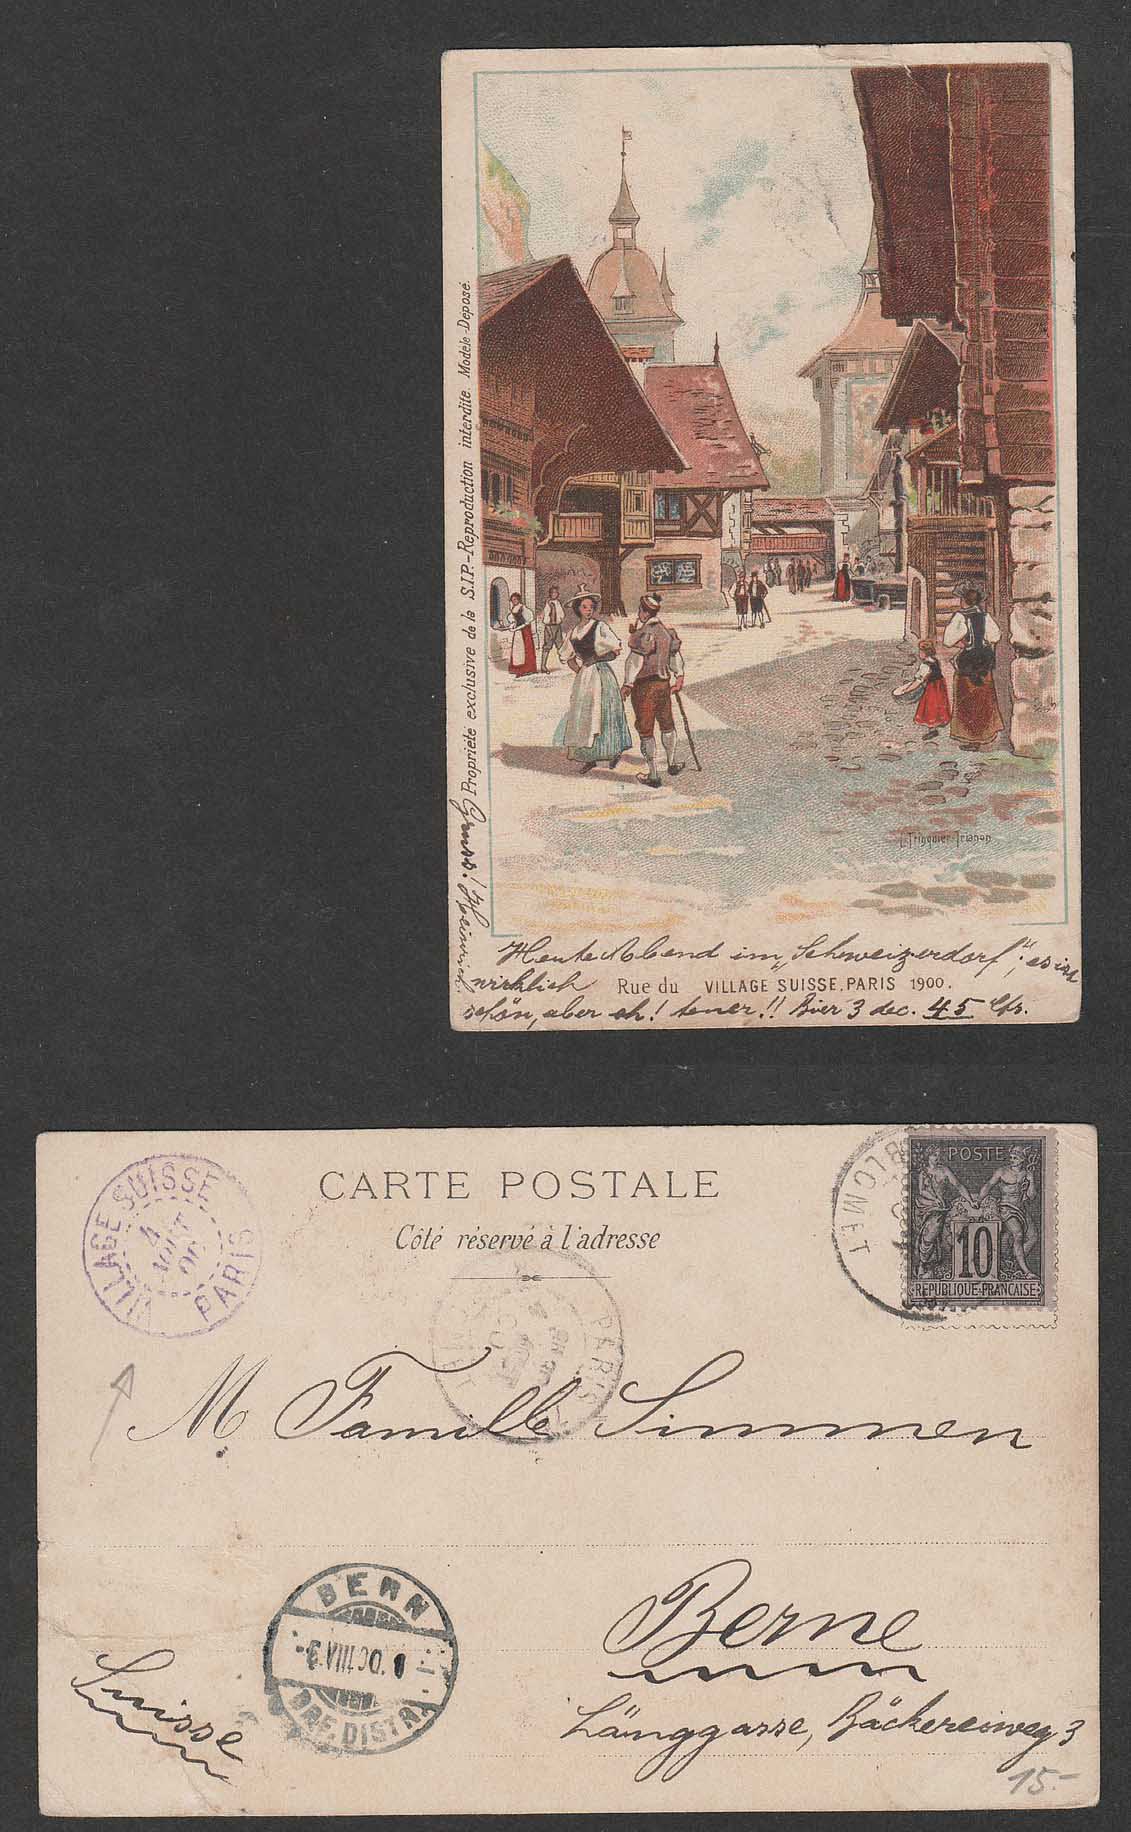 Propriété exclusive de la S.I.P.-Reproduction interdite. Modèle-Déposé.
Gruss! Heinrich.
L. Trinquier-Trianon
Heute Abend im „Schweizerdorf“; es ist
wirklich
Rue du VILLAGE SUISSE, PARIS 1900.
schön, aber oh! teuer!! Bier 3 dec. 45 Cts.
VILLAGE SUISSE
4
AOUT
PARIS
CARTE POSTALE
Côté réservé à l'adresse
BLOMET
POSTE
10
REPUBLIQUE FRANCAISE
PARIS
M Famille Simmen
BERN
VIII.00
BRF. DISTR.
Berne
Suisse
Länggasse, Bäckereiweg 3
15.-